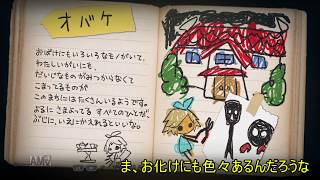 オバケ
おばけにもいろいろなモノがいて、
わたしいがいにも、
だいじなものがみつからなくて
こまってるものが
このまちにはたくさんいるようです。
よるに さまよってる すべてのひとが、
ぶじに、いえにかえれるといいな。
ま、お化けにも色々あるんだろうな